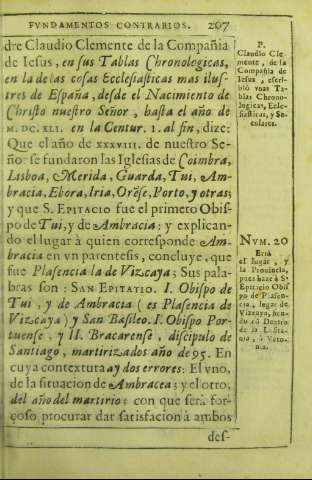 FVNDAMENTOS CONTRARIOS. 267
dre Claudio Clemente de la Compañia
de Iesus, en sus Tablas Chronologicas,
en la de las cosas Ecclesiasticas mas ilus-
tres de España, desde el Nacimiento de
Christo nuestro Señor, hasta el año de
M. DC. XLI. en la Centur. I. al fin, dize:
Que el año de XXXVIII. de nuestro Se-
ñor se fundaron las Iglesias de Coimbra,
Lisboa, Merida, Guarda, Tui, Am-
bracia, Ebora, Iria, Orẽse, Porto, y otras;
y que S. EPITACIO fue el primero Obis-
po de Tui, y de Ambracia; y explican-
do el lugar à quien corresponde Am-
bracia en vn parentesis, concluye, que
fue Plasencia la de Vizcaya; Sus pala-
bras son: SAN EPITATIO. I. Obispo de
Tui, y de Ambracia (es Plasencia de
Vizcaya) y San Basileo. I. Obispo Por-
tuense, y II. Bracarense, discipulo de
Santiago, martirizados año de 95. En
cuya contextura ay dos errores: El vno,
de la situacion de Ambracea; y el otro,
del año del martirio; con que será for-
çoso procurar dar satisfacion à ambos
des-
P.
Claudio Cle-
mente, de la
Compañia de
Iesus, escri-
biò vnas Ta-
blas Chrono-
logicas, Ecle-
siasticas, y Se-
culares.
NVM. 20
Errà
el lugar, y
la Prouincia,
pues haze à S.
Epitacio Obis-
po de Plasen-
cia, lugar de
Vizcaya, siene-
do en Dentro
de la Lusita-
nia, ò Veto-
nia.